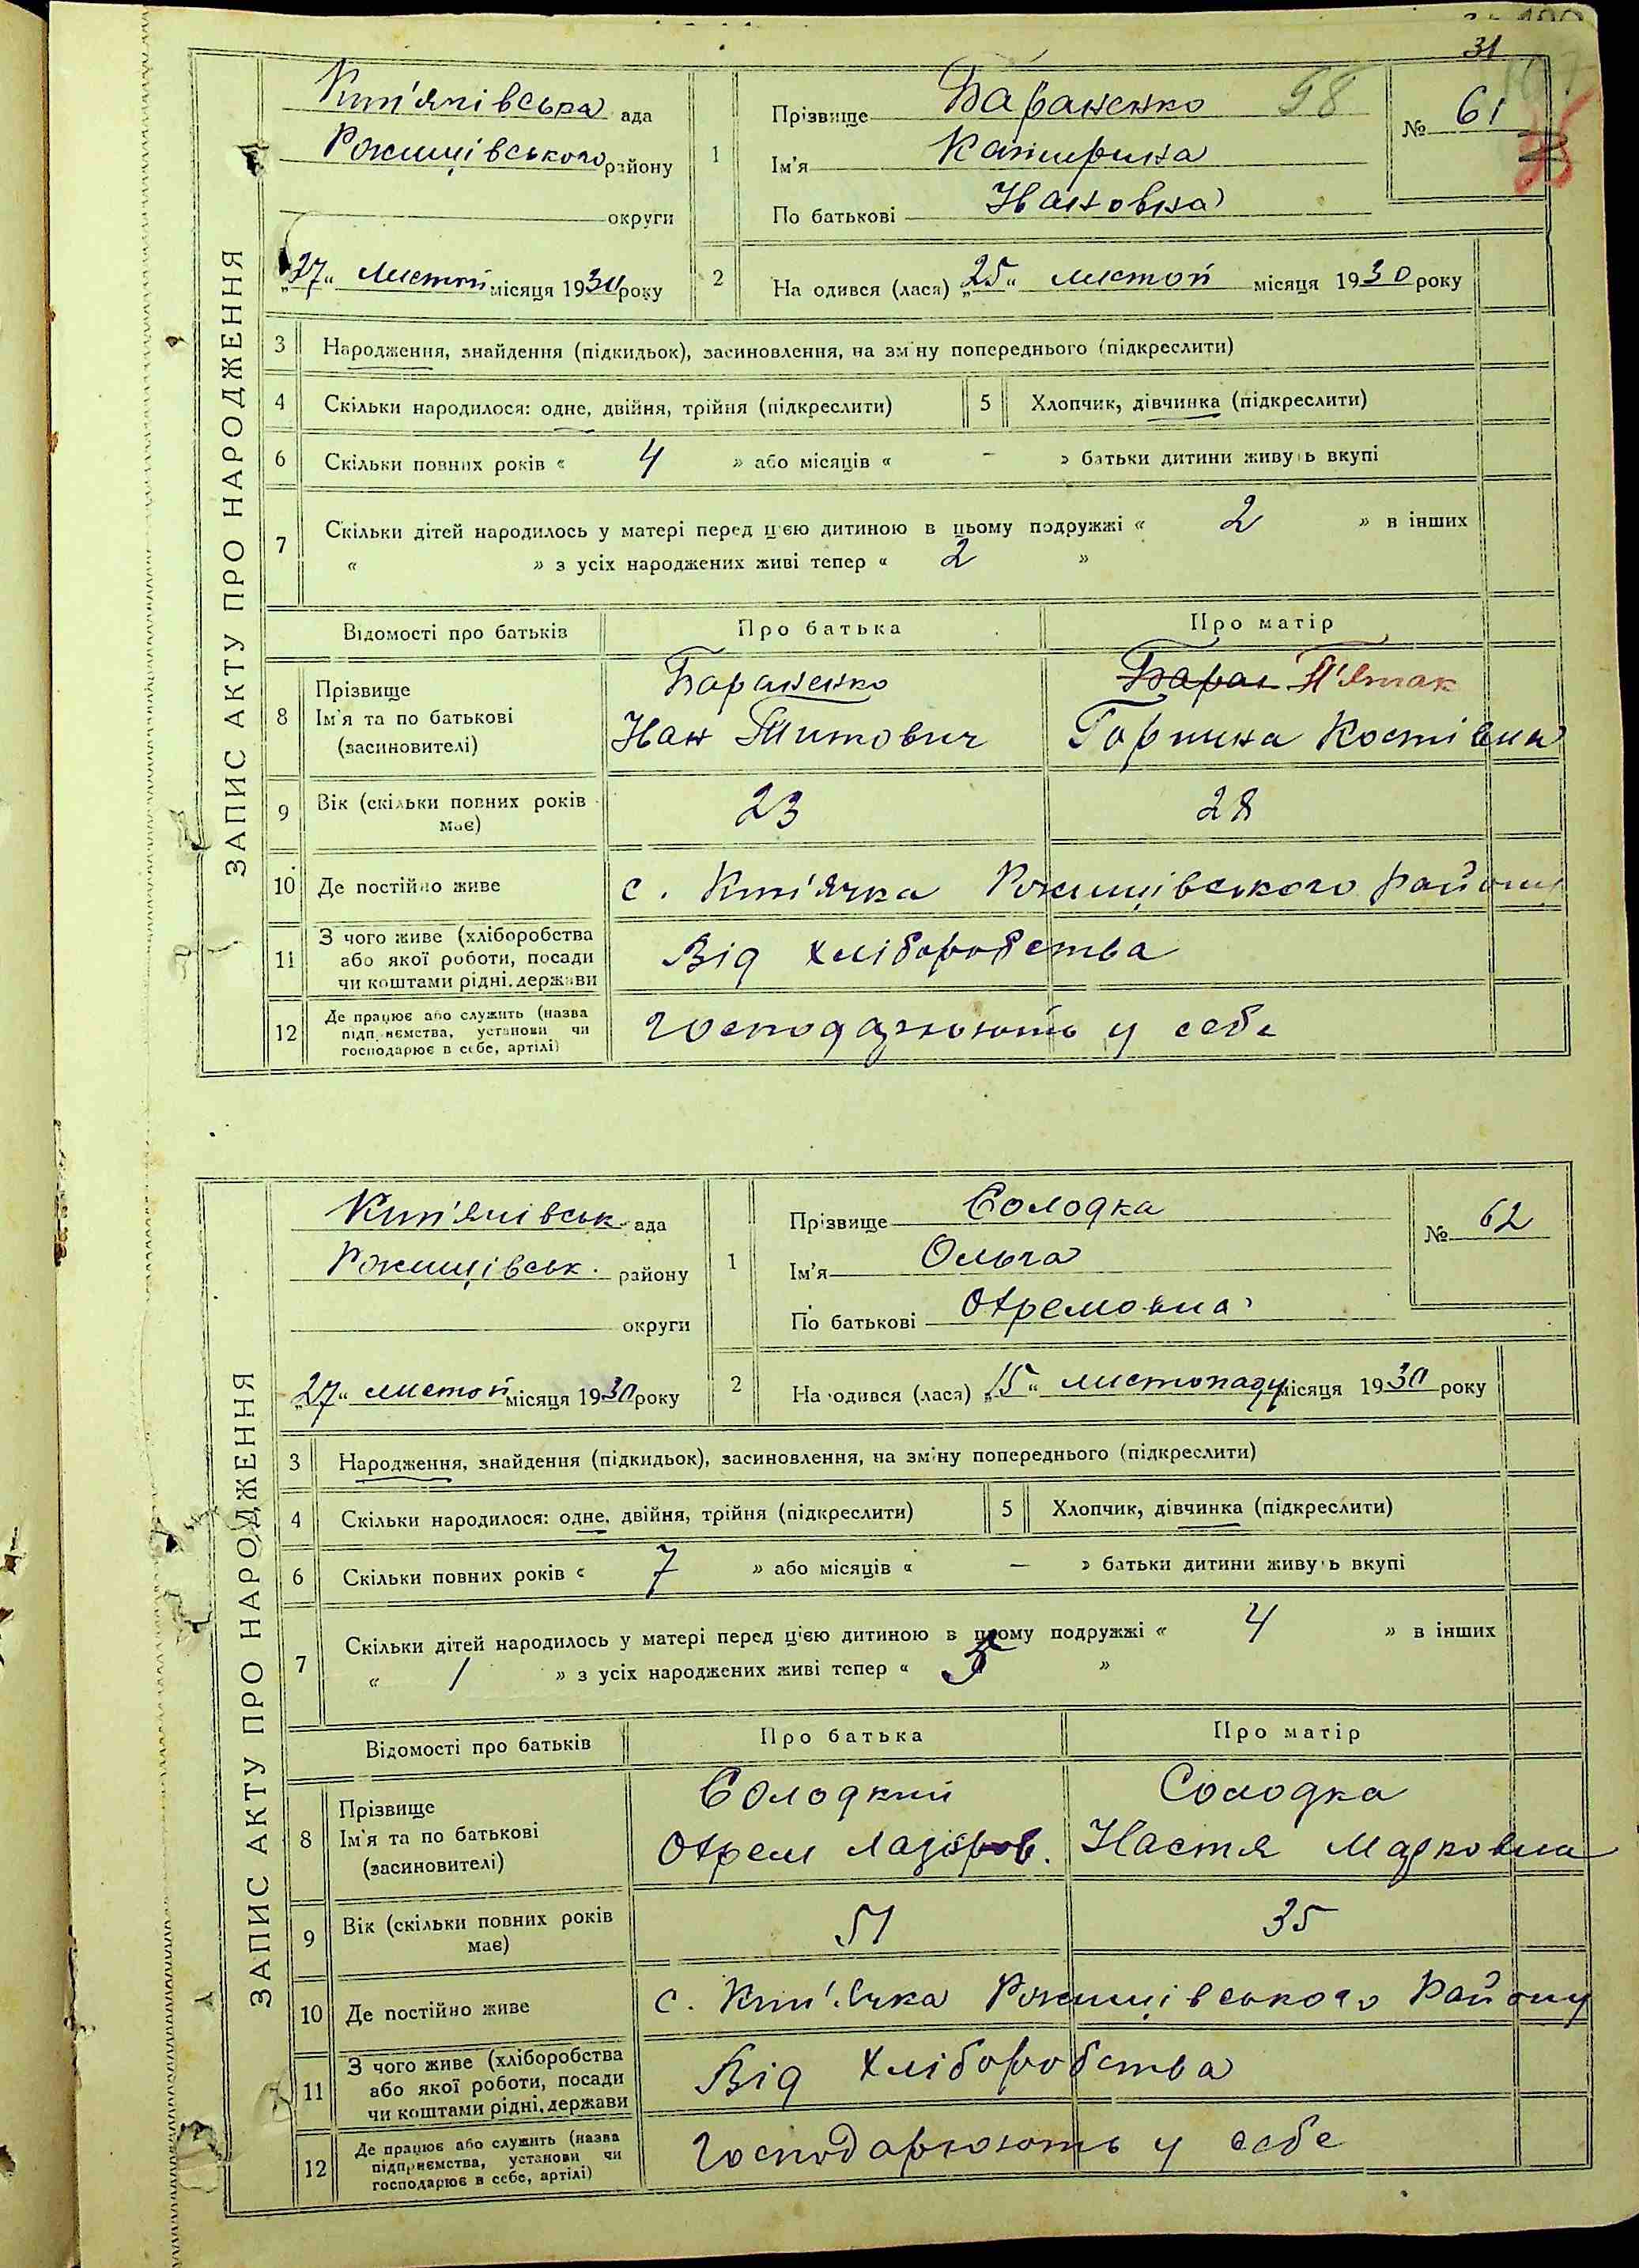 31
ЗАПИС АКТУ ПРО НАРОДЖЕННЯ
Кип'ячівська ада
району
округи
„27“ листоп місяця 1930 року
1
Прізвище Бараненко 98
Ім'я Катирина
По батькові Івановна
№ 61
2
На одився (лася) „25“ листоп місяця 1930 року
3 Народження, знайдення (підкидьок), засиновлення, на зміну попереднього (підкреслити)
4 Скільки народилося: одне, двійня, трійня (підкреслити)
5 Хлопчик, дівчинка (підкреслити)
6 Скільки повних років « 4 » або місяців « - » батьки дитини живуть вкупі
7 Скільки дітей народилось у матері перед цією дитиною в цьому подружжі « 2 » в інших
« » з усіх народжених живі тепер « 2 »
Відомості про батьків Про батька Про матір
8 Прізвище
Ім'я та по батькові
(засиновителі)
Бараненко
Іван Титович
Баран П'ятак
Горпина Костівна
9 Вік (скільки повних років має)
23 28
10 Де постійно живе с. Кип'ячка району
11 З чого живе (хліборобства
або якої роботи, посади
чи коштами рідні, держави
Від хліборобства
12 Де працює або служить (назва
підприємства, установи чи
господарює в себе, артілі)
Господарюють у себе
ЗАПИС АКТУ ПРО НАРОДЖЕННЯ
Кип'ячівськ. ада
району
округи
„27“ листоп місяця 1930 року
1
Прізвище Солодка
Ім'я Ольга
По батькові Охремовна
№ 62
2
На одився (лася) „15“ листопаду місяця 1930 року
3 Народження, знайдення (підкидьок), засиновлення, на зміну попереднього (підкреслити)
4 Скільки народилося: одне, двійня, трійня (підкреслити)
5 Хлопчик, дівчинка (підкреслити)
6 Скільки повних років « 7 » або місяців « — » батьки дитини живуть вкупі
7 Скільки дітей народилось у матері перед цією дитиною в цьому подружжі « 4 » в інших
« 1 » з усіх народжених живі тепер « 5 »
Відомості про батьків Про батька Про матір
8 Прізвище
Ім'я та по батькові
(засиновителі)
Солодкий
Охрем Лазоров.
Солодка
Настя Марковна
9 Вік (скільки повних років має)
51 35
10 Де постійно живе с. Кип'ячка району
11 З чого живе (хліборобства
або якої роботи, посади
чи коштами рідні, держави
Від хліборобства
12 Де працює або служить (назва
підприємства, установи чи
господарює в себе, артілі)
Господарюють у себе